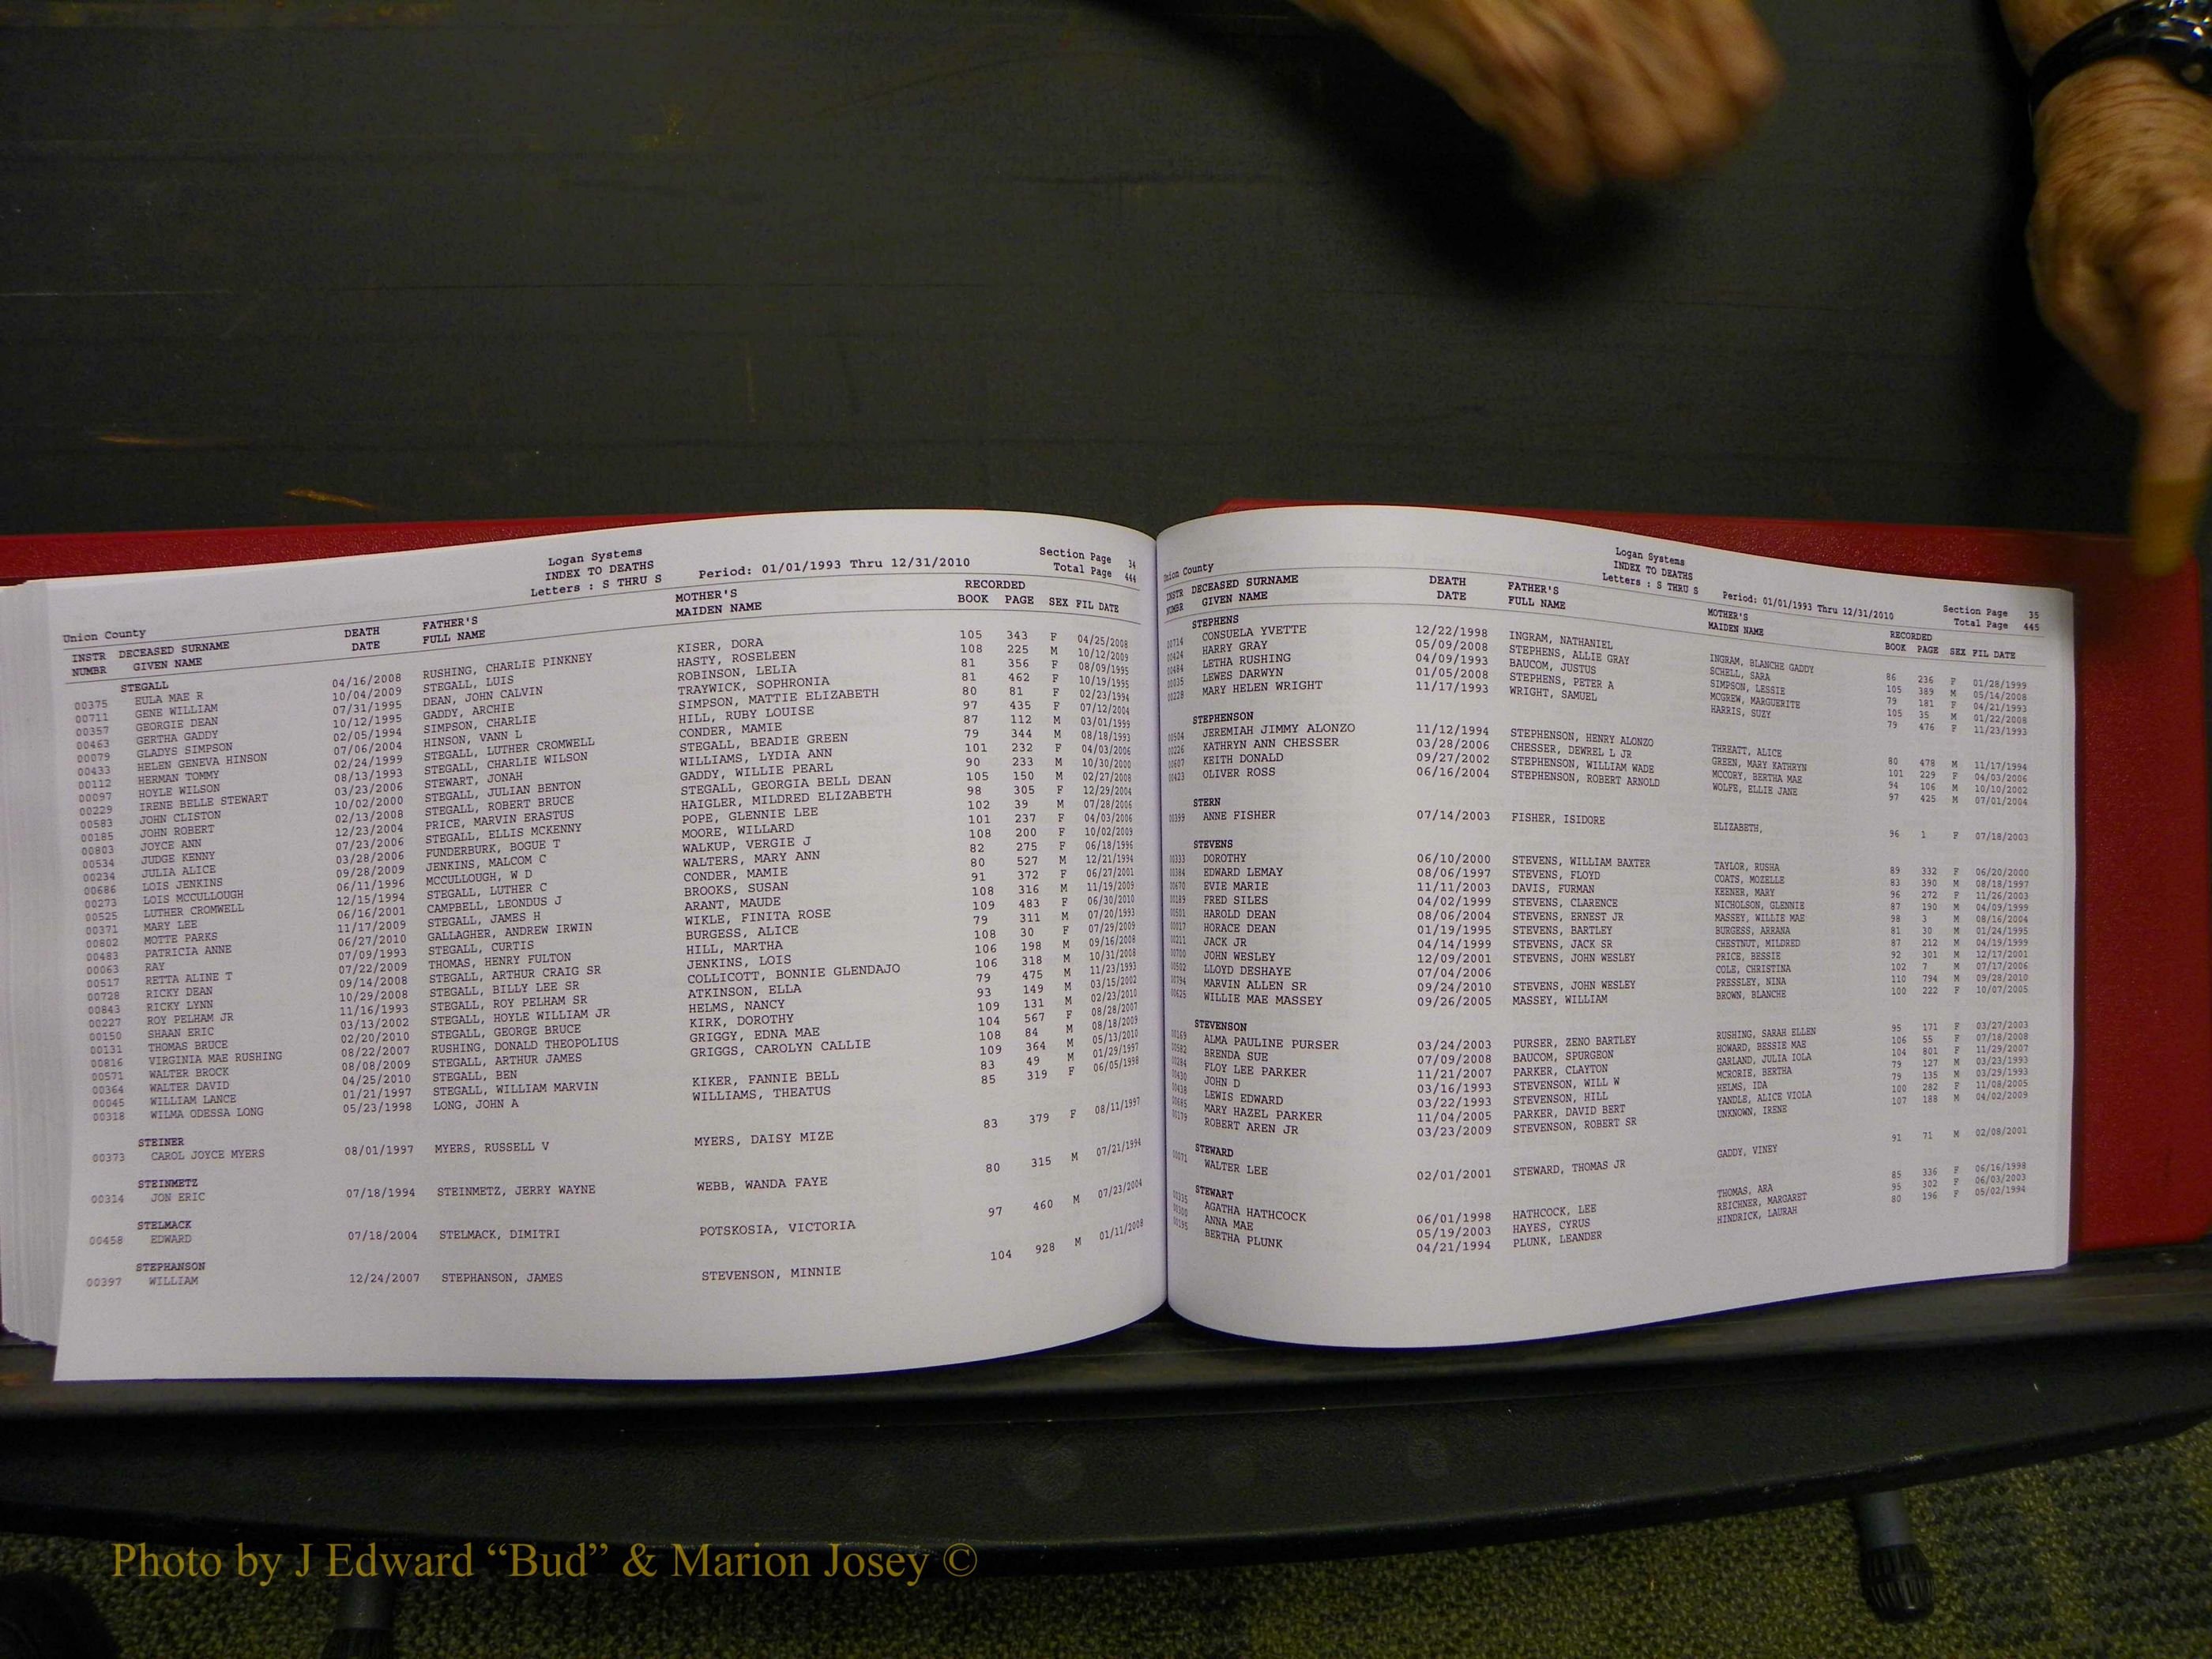 Logan Systems
INDEX TO DEATHS
Letters : S THRU S Period: 01/01/1993 Thru 12/31/2010
Section Page 34
Total Page 444
Union County
INSTR DECEASED SURNAME DEATH FATHER'S MOTHER'S RECORDED
NUMBR GIVEN NAME DATE FULL NAME MAIDEN NAME BOOK PAGE SEX FIL DATE
STEGALL
00375 EULA MAE R 04/16/2008 RUSHING, CHARLIE PINKNEY KISER, DORA 105 343 F 04/25/2008
00711 GENE WILLIAM 10/04/2009 STEGALL, LUIS HASTY, ROSELEEN 108 225 M 10/12/2009
00357 GEORGIE DEAN 07/31/1995 DEAN, JOHN CALVIN ROBINSON, LELIA 81 356 F 08/09/1995
00463 GERTHA GADDY 10/12/1995 GADDY, ARCHIE TRAYWICK, SOPHRONIA 81 462 F 10/19/1995
00079 GLADYS SIMPSON 02/05/1994 SIMPSON, CHARLIE SIMPSON, MATTIE ELIZABETH 80 81 F 02/23/1994
00433 HELEN GENEVA HINSON 07/06/2004 HINSON, VANN L HILL, RUBY LOUISE 97 435 F 07/12/2004
00112 HERMAN TOMMY 02/24/1999 STEGALL, LUTHER CROMWELL CONDER, MAMIE 87 112 M 03/01/1999
00097 HOYLE WILSON 08/13/1993 STEGALL, CHARLIE WILSON STEGALL, BEADIE GREEN 79 344 M 08/18/1993
00229 IRENE BELLE STEWART 03/23/2006 STEWART, JONAH WILLIAMS, LYDIA ANN 101 232 F 04/03/2006
00583 JOHN CLISTON 10/02/2000 STEGALL, JULIAN BENTON GADDY, WILLIE PEARL 90 233 M 10/30/2000
00185 JOHN ROBERT 02/13/2008 STEGALL, ROBERT BRUCE STEGALL, GEORGIA BELL DEAN 105 150 M 02/27/2008
00803 JOYCE ANN 12/23/2004 PRICE, MARVIN ERASTUS HAIGLER, MILDRED ELIZABETH 98 305 F 12/29/2004
00534 JUDGE KENNY 07/23/2006 STEGALL, ELLIS MCKENNY POPE, GLENNIE LEE 102 39 M 07/28/2006
00234 JULIA ALICE 03/28/2006 FUNDERBURK, BOGUE T MOORE, WILLARD 101 237 F 04/03/2006
00686 LOIS JENKINS 09/28/2009 JENKINS, MALCOM C WALKUP, VERGIE J 108 200 F 10/02/2009
00273 LOIS MCCULLOUGH 06/11/1996 MCCULLOUGH, W D WALTERS, MARY ANN 82 275 F 06/18/1996
00525 LUTHER CROMWELL 12/15/1994 STEGALL, LUTHER C CONDER, MAMIE 80 527 M 12/21/1994
00371 MARY LEE 06/16/2001 CAMPBELL, LEONDUS J BROOKS, SUSAN 91 372 F 06/27/2001
00802 MOTTE PARKS 11/17/2009 STEGALL, JAMES H ARANT, MAUDE 108 316 M 11/19/2009
00483 PATRICIA ANNE 06/27/2010 GALLAGHER, ANDREW IRWIN WIKLE, FINITA ROSE 109 483 F 06/30/2010
00063 RAY 07/09/1993 STEGALL, CURTIS BURGESS, ALICE 79 311 M 07/20/1993
00517 RETTA ALINE T 07/22/2009 THOMAS, HENRY FULTON HILL, MARTHA 108 30 F 07/29/2009
00728 RICKY DEAN 09/14/2008 STEGALL, ARTHUR CRAIG SR JENKINS, LOIS 106 198 M 09/16/2008
00843 RICKY LYNN 10/29/2008 STEGALL, BILLY LEE SR COLLICOTT, BONNIE GLENDAJO 106 318 M 10/31/2008
00227 ROY PELHAM JR 11/16/1993 STEGALL, ROY PELHAM SR ATKINSON, ELLA 79 475 M 11/23/1993
00150 SHAAN ERIC 03/13/2002 STEGALL, HOYLE WILLIAM JR HELMS, NANCY 93 149 M 03/15/2002
00131 THOMAS BRUCE 02/20/2010 STEGALL, GEORGE BRUCE KIRK, DOROTHY 109 131 M 02/23/2010
00816 VIRGINIA MAE RUSHING 08/22/2007 RUSHING, DONALD THEOPOLIUS GRIGGY, EDNA MAE 104 567 F 08/28/2007
00571 WALTER BROCK 08/08/2009 STEGALL, ARTHUR JAMES GRIGGS, CAROLYN CALLIE 108 84 M 08/18/2009
00364 WALTER DAVID 04/25/2010 STEGALL, BEN 109 364 M 05/13/2010
00045 WILLIAM LANCE 01/21/1997 STEGALL, WILLIAM MARVIN KIKER, FANNIE BELL 83 49 M 01/29/1997
00318 WILMA ODESSA LONG 05/23/1998 LONG, JOHN A WILLIAMS, THEATUS 85 319 F 06/05/1998
STEINER
00373 CAROL JOYCE MYERS 08/01/1997 MYERS, RUSSELL V MYERS, DAISY MIZE 83 379 F 08/11/1997
STEINMETZ
00314 JON ERIC 07/18/1994 STEINMETZ, JERRY WAYNE WEBB, WANDA FAYE 80 315 M 07/21/1994
STELMACK
00458 EDWARD 07/18/2004 STELMACK, DIMITRI POTSKOSIA, VICTORIA 97 460 M 07/23/2004
STEPHANSON
00397 WILLIAM 12/24/2007 STEPHANSON, JAMES STEVENSON, MINNIE 104 928 M 01/11/2008
Logan Systems
INDEX TO DEATHS
Letters : S THRU S Period: 01/01/1993 Thru 12/31/2010
Section Page 35
Total Page 445
Union County
INSTR DECEASED SURNAME DEATH FATHER'S MOTHER'S RECORDED
NUMBR GIVEN NAME DATE FULL NAME MAIDEN NAME BOOK PAGE SEX FIL DATE
STEPHENS
00714 CONSUELA YVETTE 12/22/1998 INGRAM, NATHANIEL INGRAM, BLANCHE GADDY 86 236 F 01/28/1999
00424 HARRY GRAY 05/09/2008 STEPHENS, ALLIE GRAY SCHELL, SARA 105 389 M 05/14/2008
00484 LETHA RUSHING 04/09/1993 BAUCOM, JUSTUS SIMPSON, LESSIE 79 181 F 04/21/1993
00035 LEWES DARWYN 01/05/2008 STEPHENS, PETER A MCGREW, MARGUERITE 105 35 M 01/22/2008
00228 MARY HELEN WRIGHT 11/17/1993 WRIGHT, SAMUEL HARRIS, SUZY 79 476 F 11/23/1993
STEPHENSON
00504 JEREMIAH JIMMY ALONZO 11/12/1994 STEPHENSON, HENRY ALONZO THREATT, ALICE 80 478 M 11/17/1994
00226 KATHRYN ANN CHESSER 03/28/2006 CHESSER, DEWREL L JR GREEN, MARY KATHRYN 101 229 F 04/03/2006
00607 KEITH DONALD 09/27/2002 STEPHENSON, WILLIAM WADE MCCORY, BERTHA MAE 94 106 M 10/10/2002
00423 OLIVER ROSS 06/16/2004 STEPHENSON, ROBERT ARNOLD WOLFE, ELLIE JANE 97 425 M 07/01/2004
STERN
00399 ANNE FISHER 07/14/2003 FISHER, ISIDORE ELIZABETH, 96 1 F 07/18/2003
STEVENS
00333 DOROTHY 06/10/2000 STEVENS, WILLIAM BAXTER TAYLOR, RUSHA 89 332 F 06/20/2000
00384 EDWARD LEMAY 08/06/1997 STEVENS, FLOYD COATS, MOZELLE 83 390 M 08/18/1997
00670 EVIE MARIE 11/11/2003 DAVIS, FURMAN KEENER, MARY 96 272 F 11/26/2003
00189 FRED SILES 04/02/1999 STEVENS, CLARENCE NICHOLSON, GLENNIE 87 190 M 04/09/1999
00501 HAROLD DEAN 08/06/2004 STEVENS, ERNEST JR MASSEY, WILLIE MAE 98 3 M 08/16/2004
00017 HORACE DEAN 01/19/1995 STEVENS, BARTLEY BURGESS, ARRANA 81 30 M 01/24/1995
00211 JACK JR 04/14/1999 STEVENS, JACK SR CHESTNUT, MILDRED 87 212 M 04/19/1999
00700 JOHN WESLEY 12/09/2001 STEVENS, JOHN WESLEY PRICE, BESSIE 92 301 M 12/17/2001
00502 LLOYD DESHAYE 07/04/2006 COLE, CHRISTINA 102 7 M 07/17/2006
00794 MARVIN ALLEN SR 09/24/2010 STEVENS, JOHN WESLEY PRESSLEY, NINA 110 794 M 09/28/2010
00625 WILLIE MAE MASSEY 09/26/2005 MASSEY, WILLIAM BROWN, BLANCHE 100 222 F 10/07/2005
STEVENSON
00169 ALMA PAULINE PURSER 03/24/2003 PURSER, ZENO BARTLEY RUSHING, SARAH ELLEN 95 171 F 03/27/2003
00582 BRENDA SUE 07/09/2008 BAUCOM, SPURGEON HOWARD, BESSIE MAE 106 55 F 07/18/2008
00284 FLOY LEE PARKER 11/21/2007 PARKER, CLAYTON GARLAND, JULIA IOLA 104 801 F 11/29/2007
00430 JOHN D 03/16/1993 STEVENSON, WILL W MCRORIE, BERTHA 79 127 M 03/23/1993
00438 LEWIS EDWARD 03/22/1993 STEVENSON, HILL HELMS, IDA 79 135 M 03/29/1993
00685 MARY HAZEL PARKER 11/04/2005 PARKER, DAVID BERT YANDLE, ALICE VIOLA 100 282 F 11/08/2005
00179 ROBERT AREN JR 03/23/2009 STEVENSON, ROBERT SR UNKNOWN, IRENE 107 188 M 04/02/2009
STEWARD
00071 WALTER LEE 02/01/2001 STEWARD, THOMAS JR GADDY, VINEY 91 71 M 02/08/2001
STEWART
00335 AGATHA HATHCOCK 06/01/1998 HATHCOCK, LEE THOMAS, ARA 85 336 F 06/16/1998
00300 ANNA MAE 05/19/2003 HAYES, CYRUS REICHNER, MARGARET 95 302 F 06/03/2003
00195 BERTHA PLUNK 04/21/1994 PLUNK, LEANDER HINDRICK, LAURAH 80 196 F 05/02/1994
Photo by J Edward “Bud” & Marion Josey ©